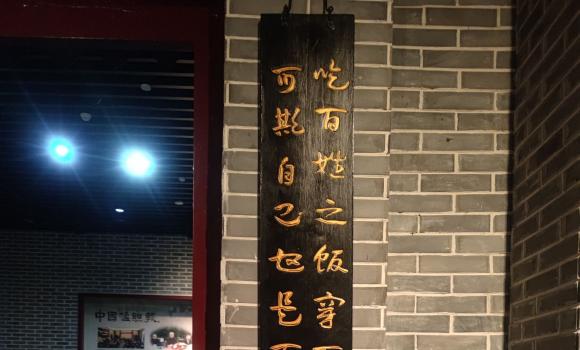 吃百姓之饭穿
可欺自己也是
中国